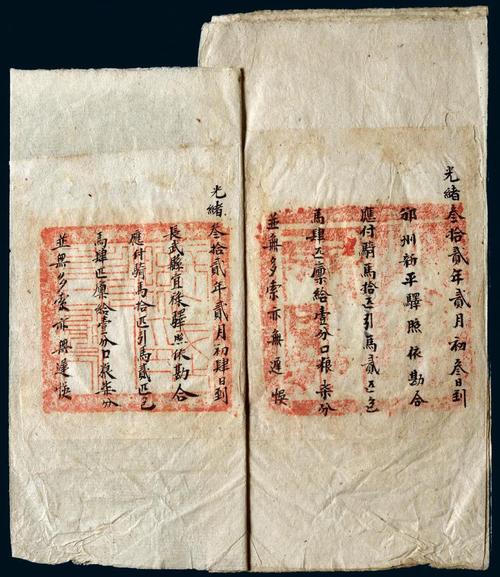 光緒叁拾貳年貳月初叁日到
邠州新平驛照依勘合
應付騎馬拾匹引馬貳匹包
馬肆匹廩給壹分口粮柒分
並無多索亦無遲悞
光緒叁拾貳年貳月初肆日到
長武縣宜祿驛照依勘合
應付騎馬拾匹引馬貳匹包
馬肆匹廩給壹分口粮柒分
並無多索亦無遲悞